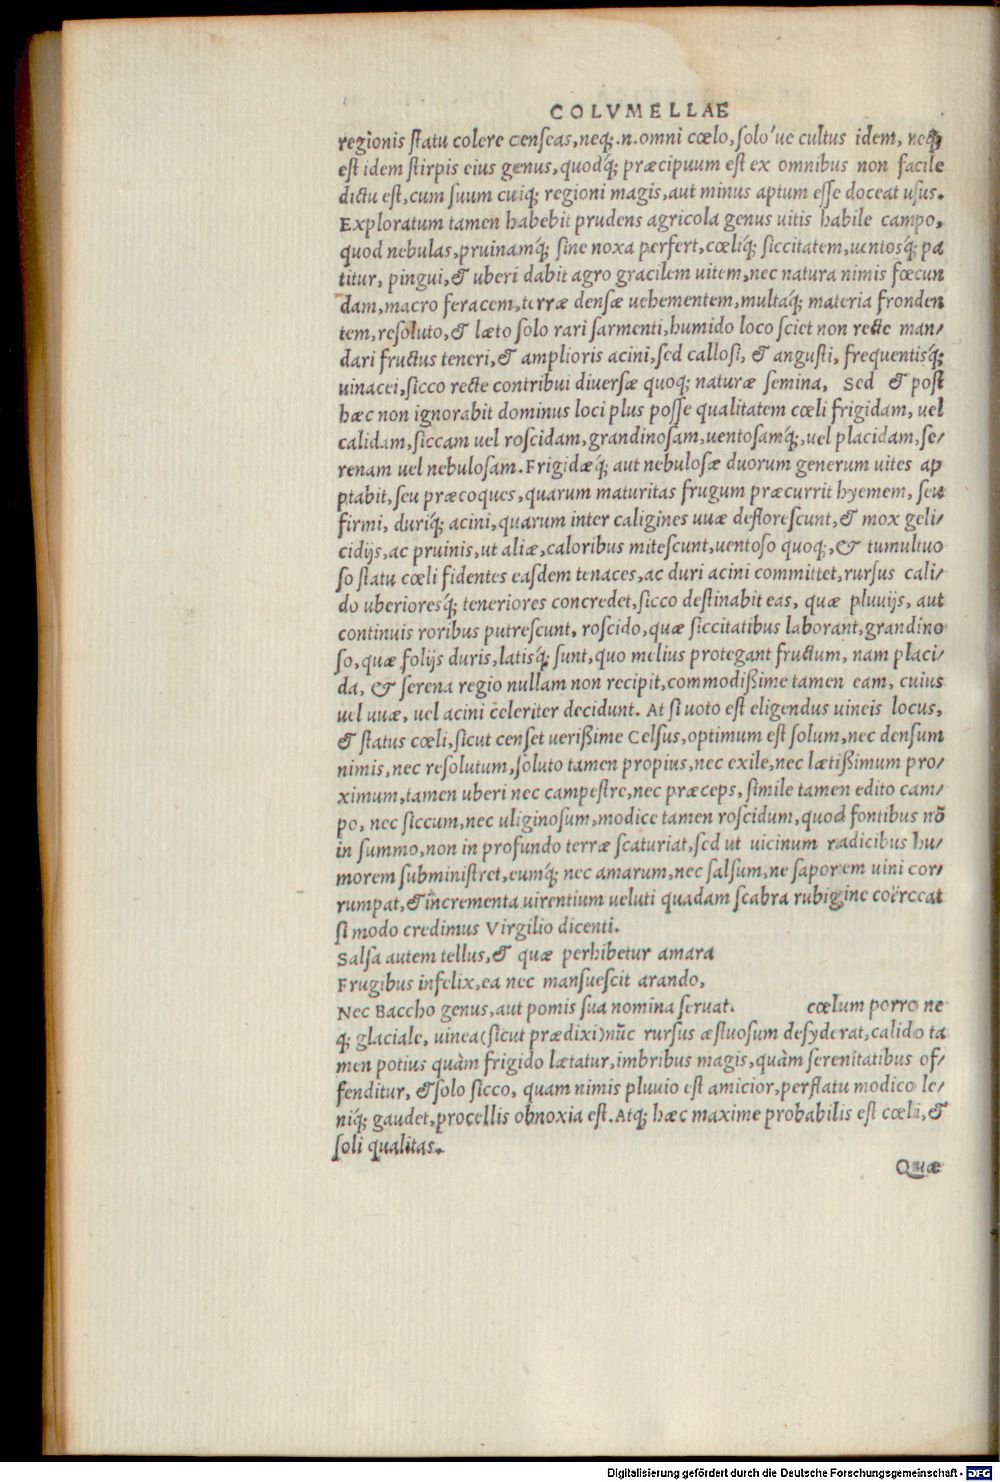 COLVMELLAE
regionis ſtatu colere cenſeas,neq;.n.omni cœlo,ſolo'ue cultus idem, neq;
eſt idem ſtirpis eius genus,quodq́; præcipuum eſt ex omnibus non facile
dictu eſt,cum ſuum cuiq; regioni magis,aut minus aptum eſſe doceat uſus.
Exploratum tamen habebit prudens agricola genus uitis habile campo,
quod nebulas,pruinamq́; ſine noxa perfert,cœliq́; ſiccitatem,uentosq́; pa
titur, pingui,& uberi dabit agro gracilem uitem,nec natura nimis fœcun
dam,macro feracem,terræ denſæ uehementem,multaq́; materia fronden
tem,reſoluto,& læto ſolo rari ſarmenti,humido loco ſciet non recte man/
dari fructus teneri,& amplioris acini,ſed calloſi, & anguſti, frequentisq́;
uinacei,ſicco recte contribui diuerſæ quoq; naturæ ſemina, Sed & poſt
hæc non ignorabit dominus loci plus poſſe qualitatem cœli frigidam, uel
calidam,ſiccam uel roſcidam,grandinoſam,uentoſamq́;,uel placidam,ſe/
renam uel nebuloſam.Frigidæq́; aut nebuloſæ duorum generum uites ap
ptabit,ſeu præcoques,quarum maturitas frugum præcurrit hyemem, ſeu
firmi, duriq́; acini,quarum inter caligines uuæ defloreſcunt,& mox geli/
cidijs,ac pruinis,ut aliæ,caloribus miteſcunt,uentoſo quoq;,& tumultuo
ſo ſtatu cœli fidentes eaſdem tenaces,ac duri acini committet,rurſus cali/
do uberioresq́; teneriores concredet,ſicco deſtinabit eas, quæ pluuijs, aut
continuis roribus putreſcunt, roſcido,quæ ſiccitatibus laborant,grandino
ſo,quæ folijs duris,latisq́; ſunt,quo melius protegant fructum, nam placi/
da, & ſerena regio nullam non recipit,commodißime tamen eam, cuius
uel uuæ, uel acini celeriter decidunt. At ſi uoto eſt eligendus uineis locus,
& ſtatus cœli,ſicut cenſet uerißime Celſus,optimum eſt ſolum,nec denſum
nimis,nec reſolutum,ſoluto tamen propius,nec exile,nec lætißimum pro/
ximum,tamen uberi nec campeſtre,nec præceps, ſimile tamen edito cam/
po, nec ſiccum,nec uliginoſum,modice tamen roſcidum,quod fontibus nō
in ſummo,non in profundo terræ ſcaturiat,ſed ut uicinum radicibus hu/
morem ſubminiſtret,eumq́; nec amarum,nec ſalſum,ne ſaporem uini cor/
rumpat,& incrementa uirentium ueluti quadam ſcabra rubigine coërceat
ſi modo credimus Virgilio dicenti.
Salſa autem tellus,& quæ perhibetur amara
Frugibus infelix,ea nec manſueſcit arando,
Nec Baccho genus,aut pomis ſua nomina ſeruat. cœlum porro ne
q; glaciale, uinea(ſicut prædixi)nūc rurſus æſtuoſum deſyderat,calido ta
men potius quàm frigido lætatur,imbribus magis,quàm ſerenitatibus of/
fenditur, & ſolo ſicco, quam nimis pluuio eſt amicior,perflatu modico le/
niq́; gaudet,procellis obnoxia eſt.Atq; hæc maxime probabilis eſt cœli,&
ſoli qualitas.
Quæ
Digitalisierung gefördert durch die Deutsche Forschungsgemeinschaft - DFG